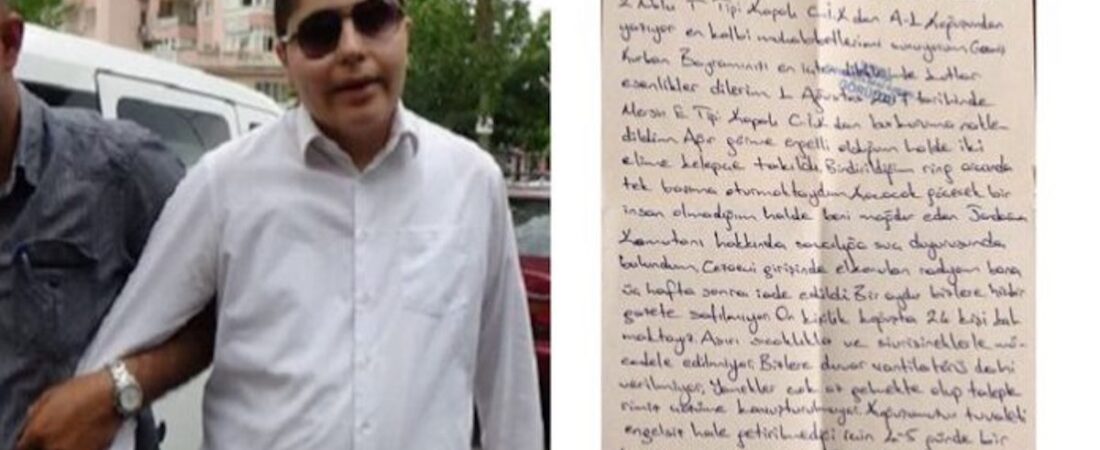 2 Nolu T Tipi Kapalı C.İ.K dan A-1 Koğuşundan
yazıyor en kalbi muhabbetlerimi sunuyorum Geçmiş
Kurban Bayramınızı en içten dileklerimle kutlar
GÖRÜLDÜ
esenlikler dilerim 1 Ağustos 2017 tarihinde
Mersin E Tipi Kapalı C.İ.K dan bu kuruma nakle
dildim Ağır görme engelli olduğum halde iki
elime kelepçe takıldı. Bindirildiğim ring aracında
tek başıma oturmaktaydım Kaçacak göçecek bir
insan olmadığım halde beni mağdur eden Jandarma
Komutanı hakkında savcılığa suç duyurusunda
bulundum. Cezaevi girişinde elkonulan radyom bana
üç hafta sonra iade edildi Bir aydır bizlere hiçbir
gazete satılmıyor. On kişilik koğuşta 24 kişi kal
maktayız. Aşırı sıcaklıkla ve sivrisineklerle mü
cadele edilmiyor. Bizlere duvar vantilatörü dahi
verilmiyor. Yemekler çok az gelmekte olup talepler
rimiz üstüne kavuşturulmuyor. Koğuşumuzun tuvaleti
engelsiz hale getirilmediği için 4-5 günde bir